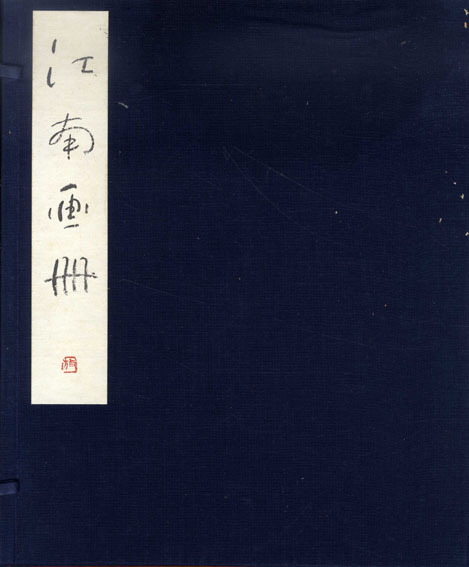 江南画册